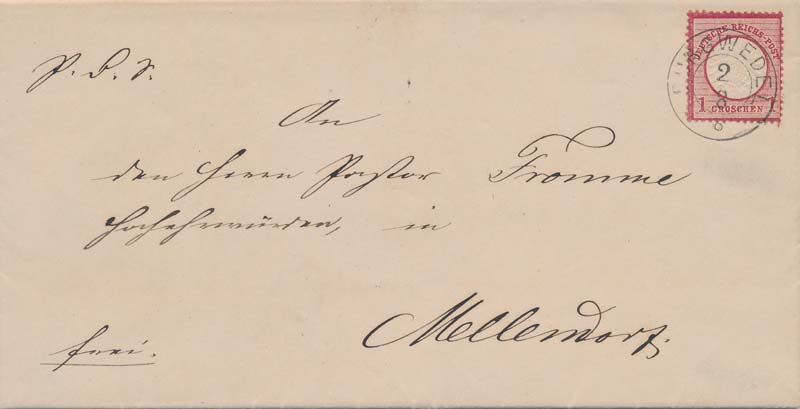 P. D. S.
DEUTSCHE REICHS-POST
1 GROSCHEN
BURGWEDEL
2
8
An
den Herrn Pastor Fromme
Hochehrwürden, in
Mellendorf.
frei.